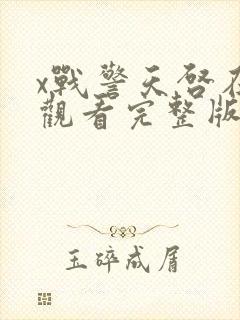 x戰警天啓在
觀看完整版
玉碎成屑